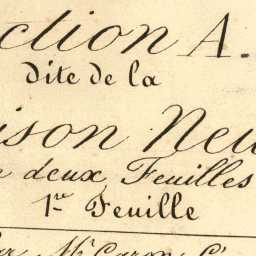 ction A.
dite de la
ison Neu
deux Feuilles
1re Feuille
Mr Caron